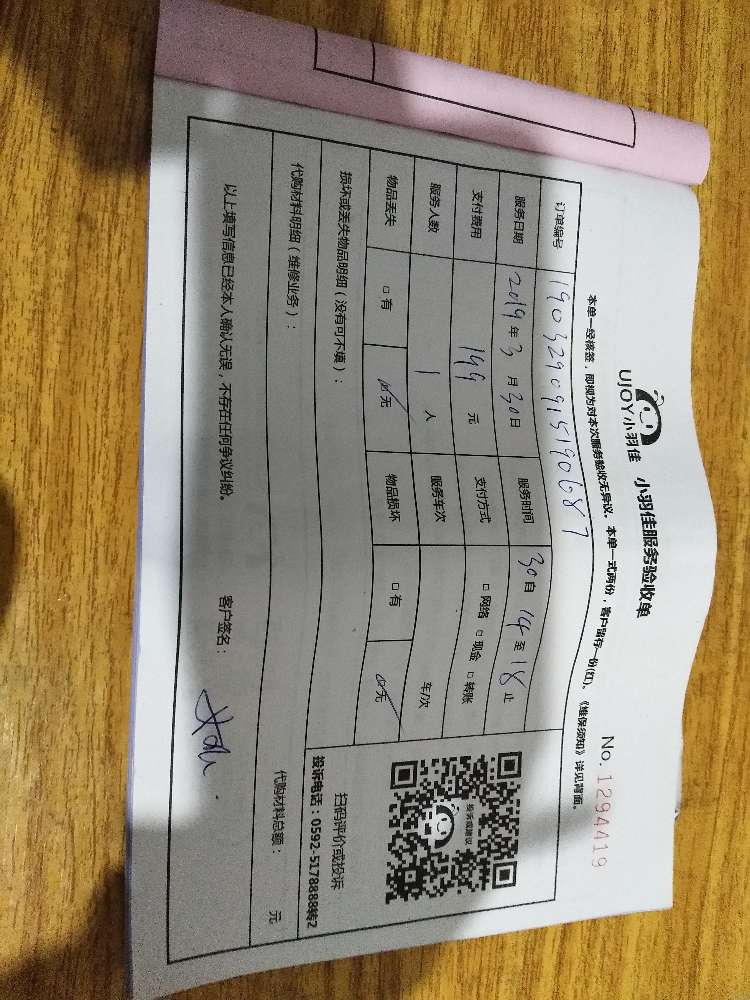 UJOY小羽佳 小羽佳服务验收单
No.1294419
本单一经核签,即视为对本次服务验收无异议。本单一式两份,客户留存一份(红)。《维保须知》详见背面。
订单编号 190329091519068 7
服务日期 2019年3月30日 服务时间 30自14至18止
支付费用 199元 支付方式 □网络 □现金 □转账
服务人数 1人 服务车次 车/次
物品丢失 □有 ☑无 物品损坏 □有 ☑无
投诉或建议
扫码评价或投诉
投诉电话:0592-5178888转2
损坏或丢失物品明细(没有可不填):
代购材料明细(维修业务): 代购材料总额: 元
以上填写信息已经本人确认无误,不存在任何争议纠纷。 客户签名: